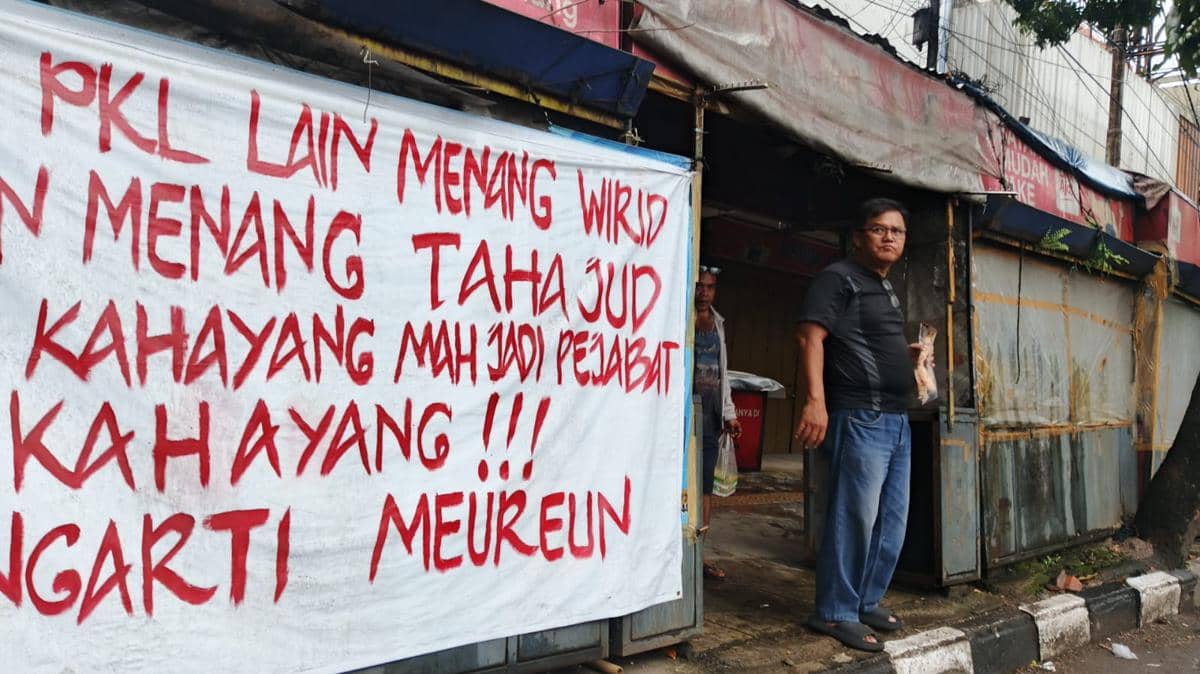 PKL LAIN MENANG WIRID
N MENANG TAHAJUD
KAHAYANG MAH JADI PEJABAT
KAHAYANG !!!
NGARTI MEUREUN
MUDAH
ANYA DI